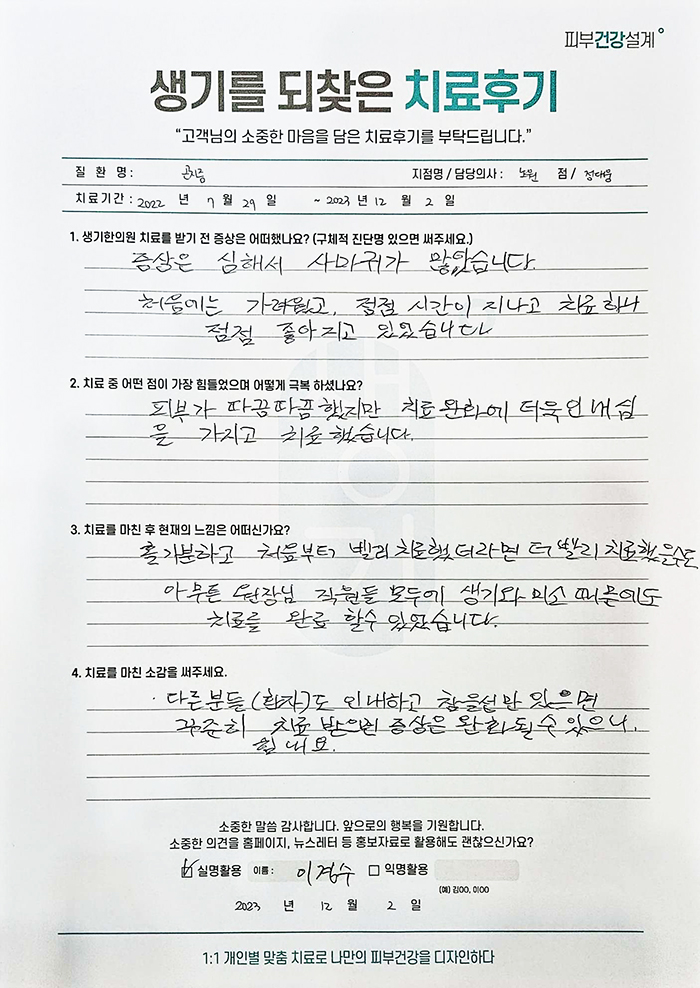 피부건강설계
생기를 되찾은 치료후기
“고객님의 소중한 마음을 담은 치료후기를 부탁드립니다.”
질 환 명 : 곤지름 지점명 / 담당의사 : 노원 점 / 정대웅
치료기간 : 2022 년 7 월 29 일 ~ 2023 년 12 월 2 일
1. 생기한의원 치료를 받기 전 증상은 어떠했나요? (구체적 진단명 있으면 써주세요.)
증상은 심해서 사마귀가 많았습니다.
처음에는 가려웠고, 점점 시간이 지나고 치료하니
점점 좋아지고 있었습니다
2. 치료 중 어떤 점이 가장 힘들었으며 어떻게 극복 하셨나요?
피부가 따끔따끔했지만 치료완화에 더욱 인내심
을 가지고 치료했습니다.
3. 치료를 마친 후 현재의 느낌은 어떠신가요?
홀가분하고 처음부터 빨리 치료했더라면 더 빨리 치료했을수도
아무튼 원장님 직원들 모두에 생기와 미소 때문에도
치료를 완료 할수 있었습니다.
4. 치료를 마친 소감을 써주세요.
· 다른분들(환자)도 인내하고 참을성만 있으면
꾸준히 치료 받으면 증상은 완화 될 수 있으니.
힘내요.
소중한 말씀 감사합니다. 앞으로의 행복을 기원합니다.
소중한 의견을 홈페이지, 뉴스레터 등 홍보자료로 활용해도 괜찮으신가요?
☑ 실명활용 이름 : 이겸수 □ 익명활용
(예) 김OO, 이OO
2023 년 12 월 2 일
1:1 개인별 맞춤 치료로 나만의 피부건강을 디자인하다